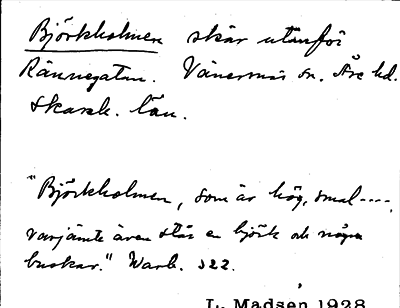 Björkholmen skär utanför
Rännegatan. Vänersnäs sn. Åse hd.
Skarab. län.
"Björkholmen, som är hög, smal----,
varjämte även står en björk och några
buskar." Warb. 322.
L. Madsen 1928